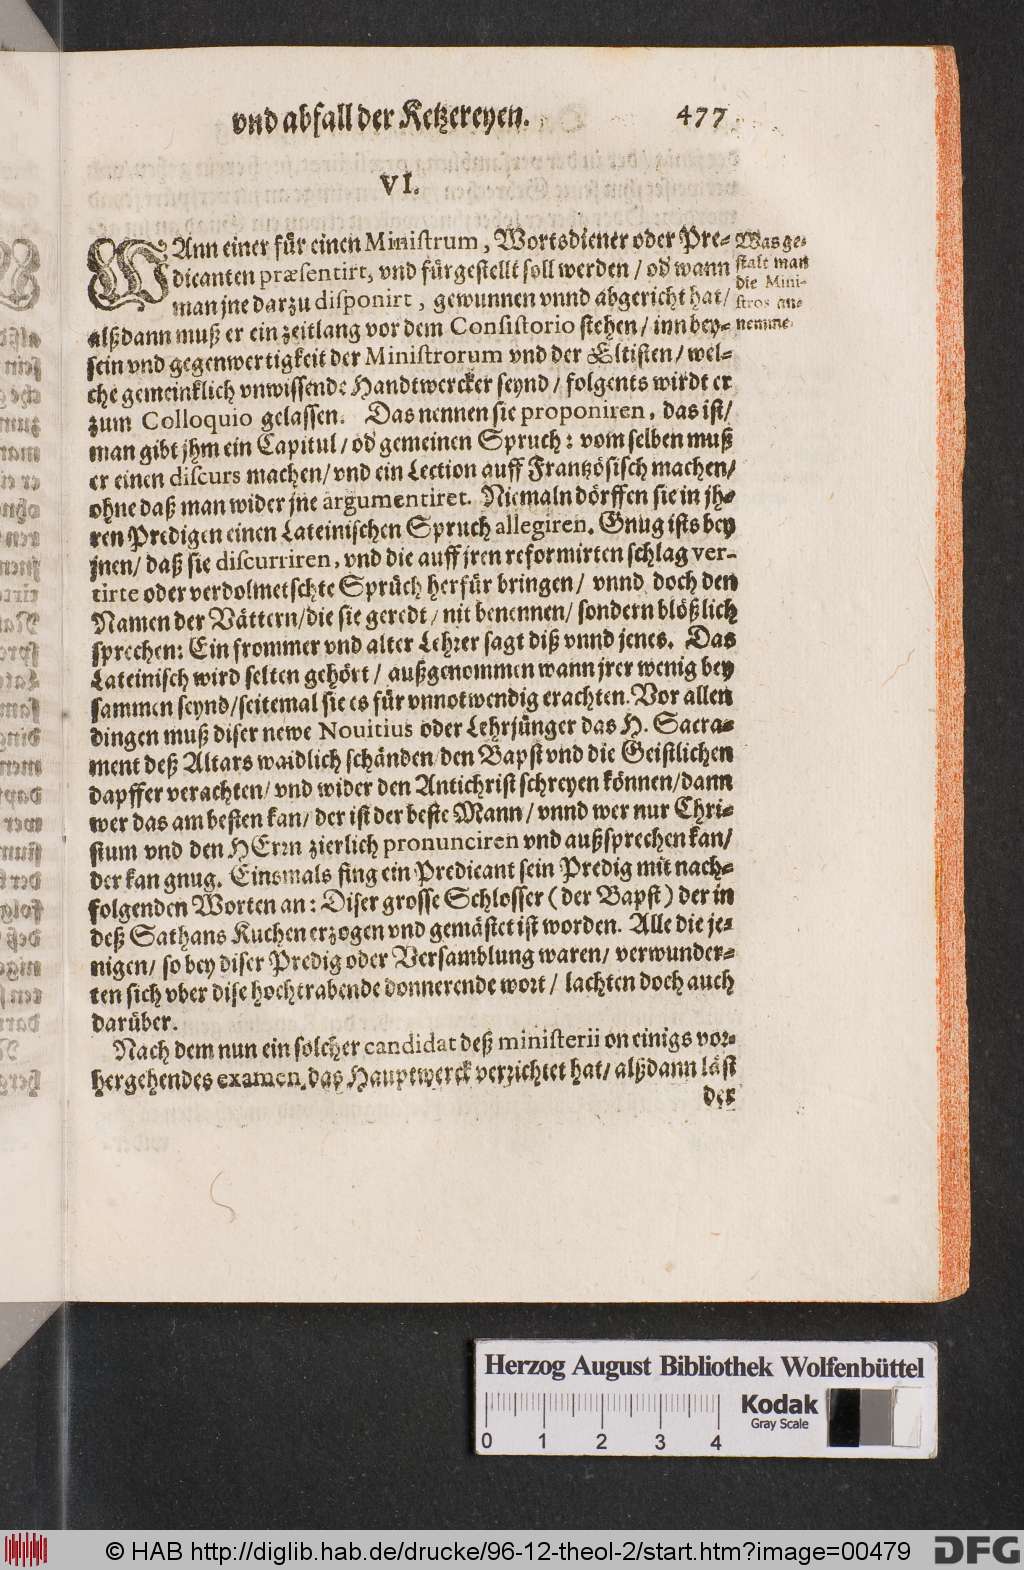 vnd abfall der Ketzereyen. 477
VI.
WAnn einer für einen Ministrum, Wortsdiener oder Pre-
dicanten præsentirt, vnd fürgestellt soll werden / od wann
man jne darzu disponirt, gewunnen vnnd abgericht hat /
alßdann muß er ein zeitlang vor dem Consistorio stehen / inn bey-
sein vnd gegenwertigkeit der Ministrorum vnd der Eltisten / wel-
che gemeinklich vnwissende Handtwercker seynd / folgents wirdt er
zum Colloquio gelassen. Das nennen sie proponiren, das ist /
man gibt jhm ein Capitul / od gemeinen Spruch: vom selben muß
er einen discurs machen / vnd ein Lection auff Frantzösisch machen /
ohne daß man wider jne argumentiret. Niemaln dörffen sie in jh-
ren Predigen einen Lateinischen Spruch allegiren. Gnug ists bey
jnen / daß sie discurriren, vnd die auff jren reformirten schlag ver-
tirte oder verdolmetschte Sprüch herfür bringen / vnnd doch den
Namen der Vättern / die sie geredt / nit benennen / sondern blößlich
sprechen: Ein frommer vnd alter Lehrer sagt diß vnnd jenes. Das
Lateinisch wird selten gehört / außgenommen wann jrer wenig bey
sammen seynd / seitemal sie es für vnnotwendig erachten. Vor allen
dingen muß diser newe Nouitius oder Lehrjünger das H. Sacra-
ment deß Altars waidlich schänden / den Bapst vnd die Geistlichen
dapffer verachten / vnd wider den Antichrist schreyen können / dann
wer das am besten kan / der ist der beste Mann / vnnd wer nur Chri-
stum vnd den HErrn zierlich pronunciren vnd außsprechen kan /
der kan gnug. Einsmals fing ein Predicant sein Predig mit nach-
folgenden Worten an: Diser grosse Schlosser (der Bapst) der in
deß Sathans Kuchen erzogen vnd gemästet ist worden. Alle die je-
nigen / so bey diser Predig oder Versamblung waren / verwunder-
ten sich vber dise hochtrabende donnerende wort / lachten doch auch
darüber.
Nach dem nun ein solcher candidat deß ministerii on einigs vor-
hergehendes examen, das Hauptwerck verzichtet hat / alßdann läst
der
Was ge-
stalt man
die Mini-
stros an-
nemme.
Herzog August Bibliothek Wolfenbüttel
0 1 2 3 4
Kodak
Gray Scale
© HAB http://diglib.hab.de/drucke/96-12-theol-2/start.htm?image=00479
DFG